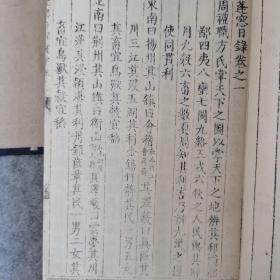 蓬窓日錄卷之一
周禮職方氏掌天下之圖以掌天下之地辨其邦國都
鄙四夷八蠻七閩九貉五戎六狄之人民與其財
用九穀六畜之數要周知其利害乃辨九州之國
使同貫利
東南曰揚州其山鎮曰會稽其澤藪曰具區其
川三江其浸五湖其利金錫竹箭其民二男五女
其畜宜鳥獸其穀宜稻
正南曰荊州其山鎮曰衡山其澤藪曰雲夢其川
江漢其浸潁湛其利丹銀齒革其民一男二女其
畜宜鳥獸其穀宜稻